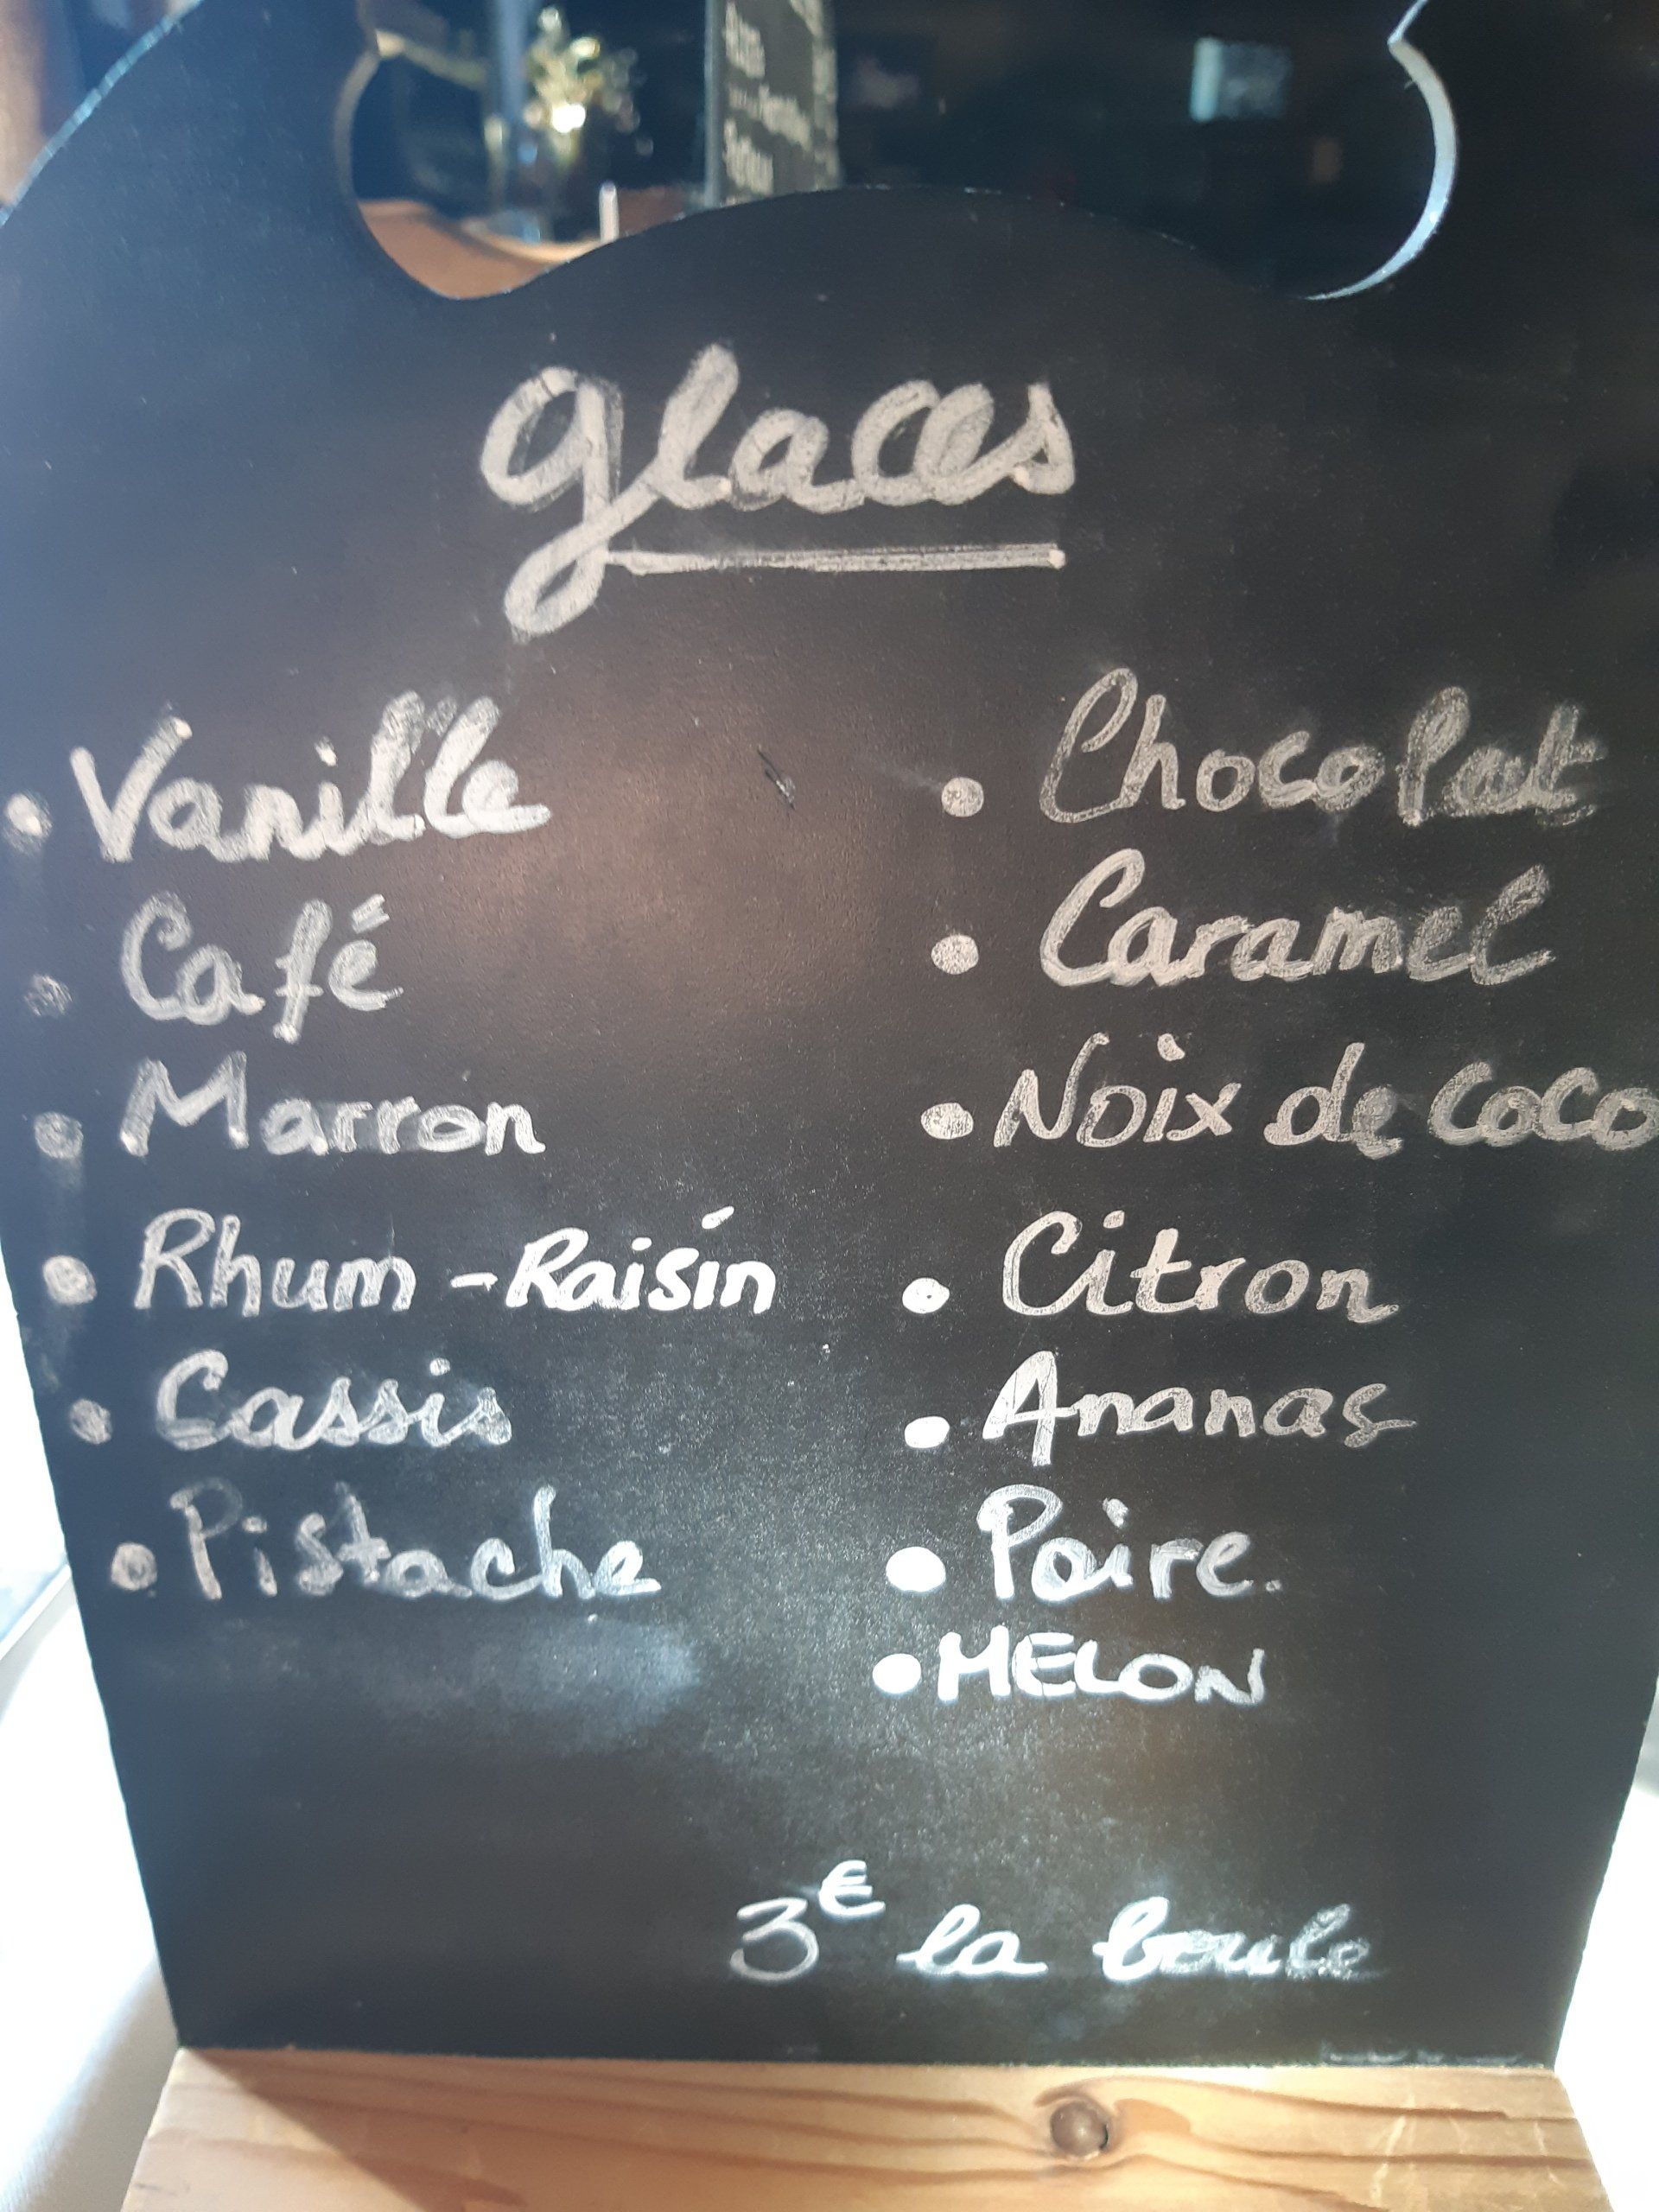 glaces
• Vanille
• Café
• Marron
• Rhum - Raisin
• Cassis
• Pistache
• Chocolat
• Caramel
• Noix de coco
• Citron
• Ananas
• Poire.
• MELON
3€ la boule